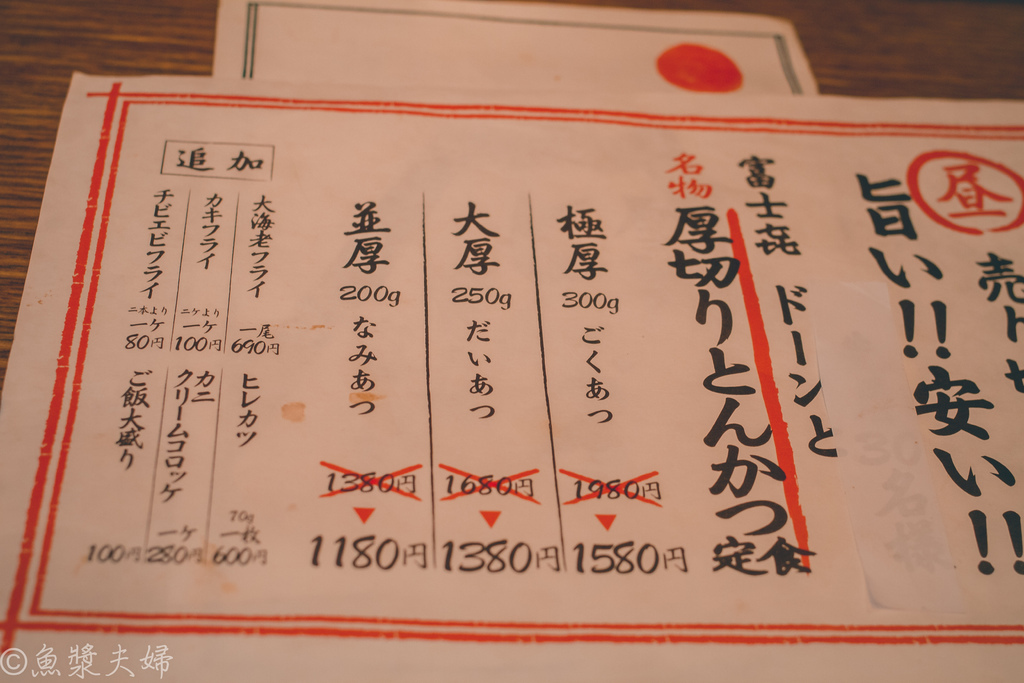 昼
旨い!!安い!!
富士㐂 ドーンと
名物
厚切りとんかつ定食
極厚
300g
ごくあつ
1980円
1580円
大厚
250g
だいあつ
1680円
1380円
並厚
200g
なみあつ
1380円
1180円
追加
大海老フライ
一尾
690円
カキフライ
二ケより
一ケ
100円
チビエビフライ
二本より
一ケ
80円
ヒレカツ
70g
一枚
600円
カニ
クリームコロッケ
一ケ
280円
ご飯大盛り
100円
©魚漿夫婦